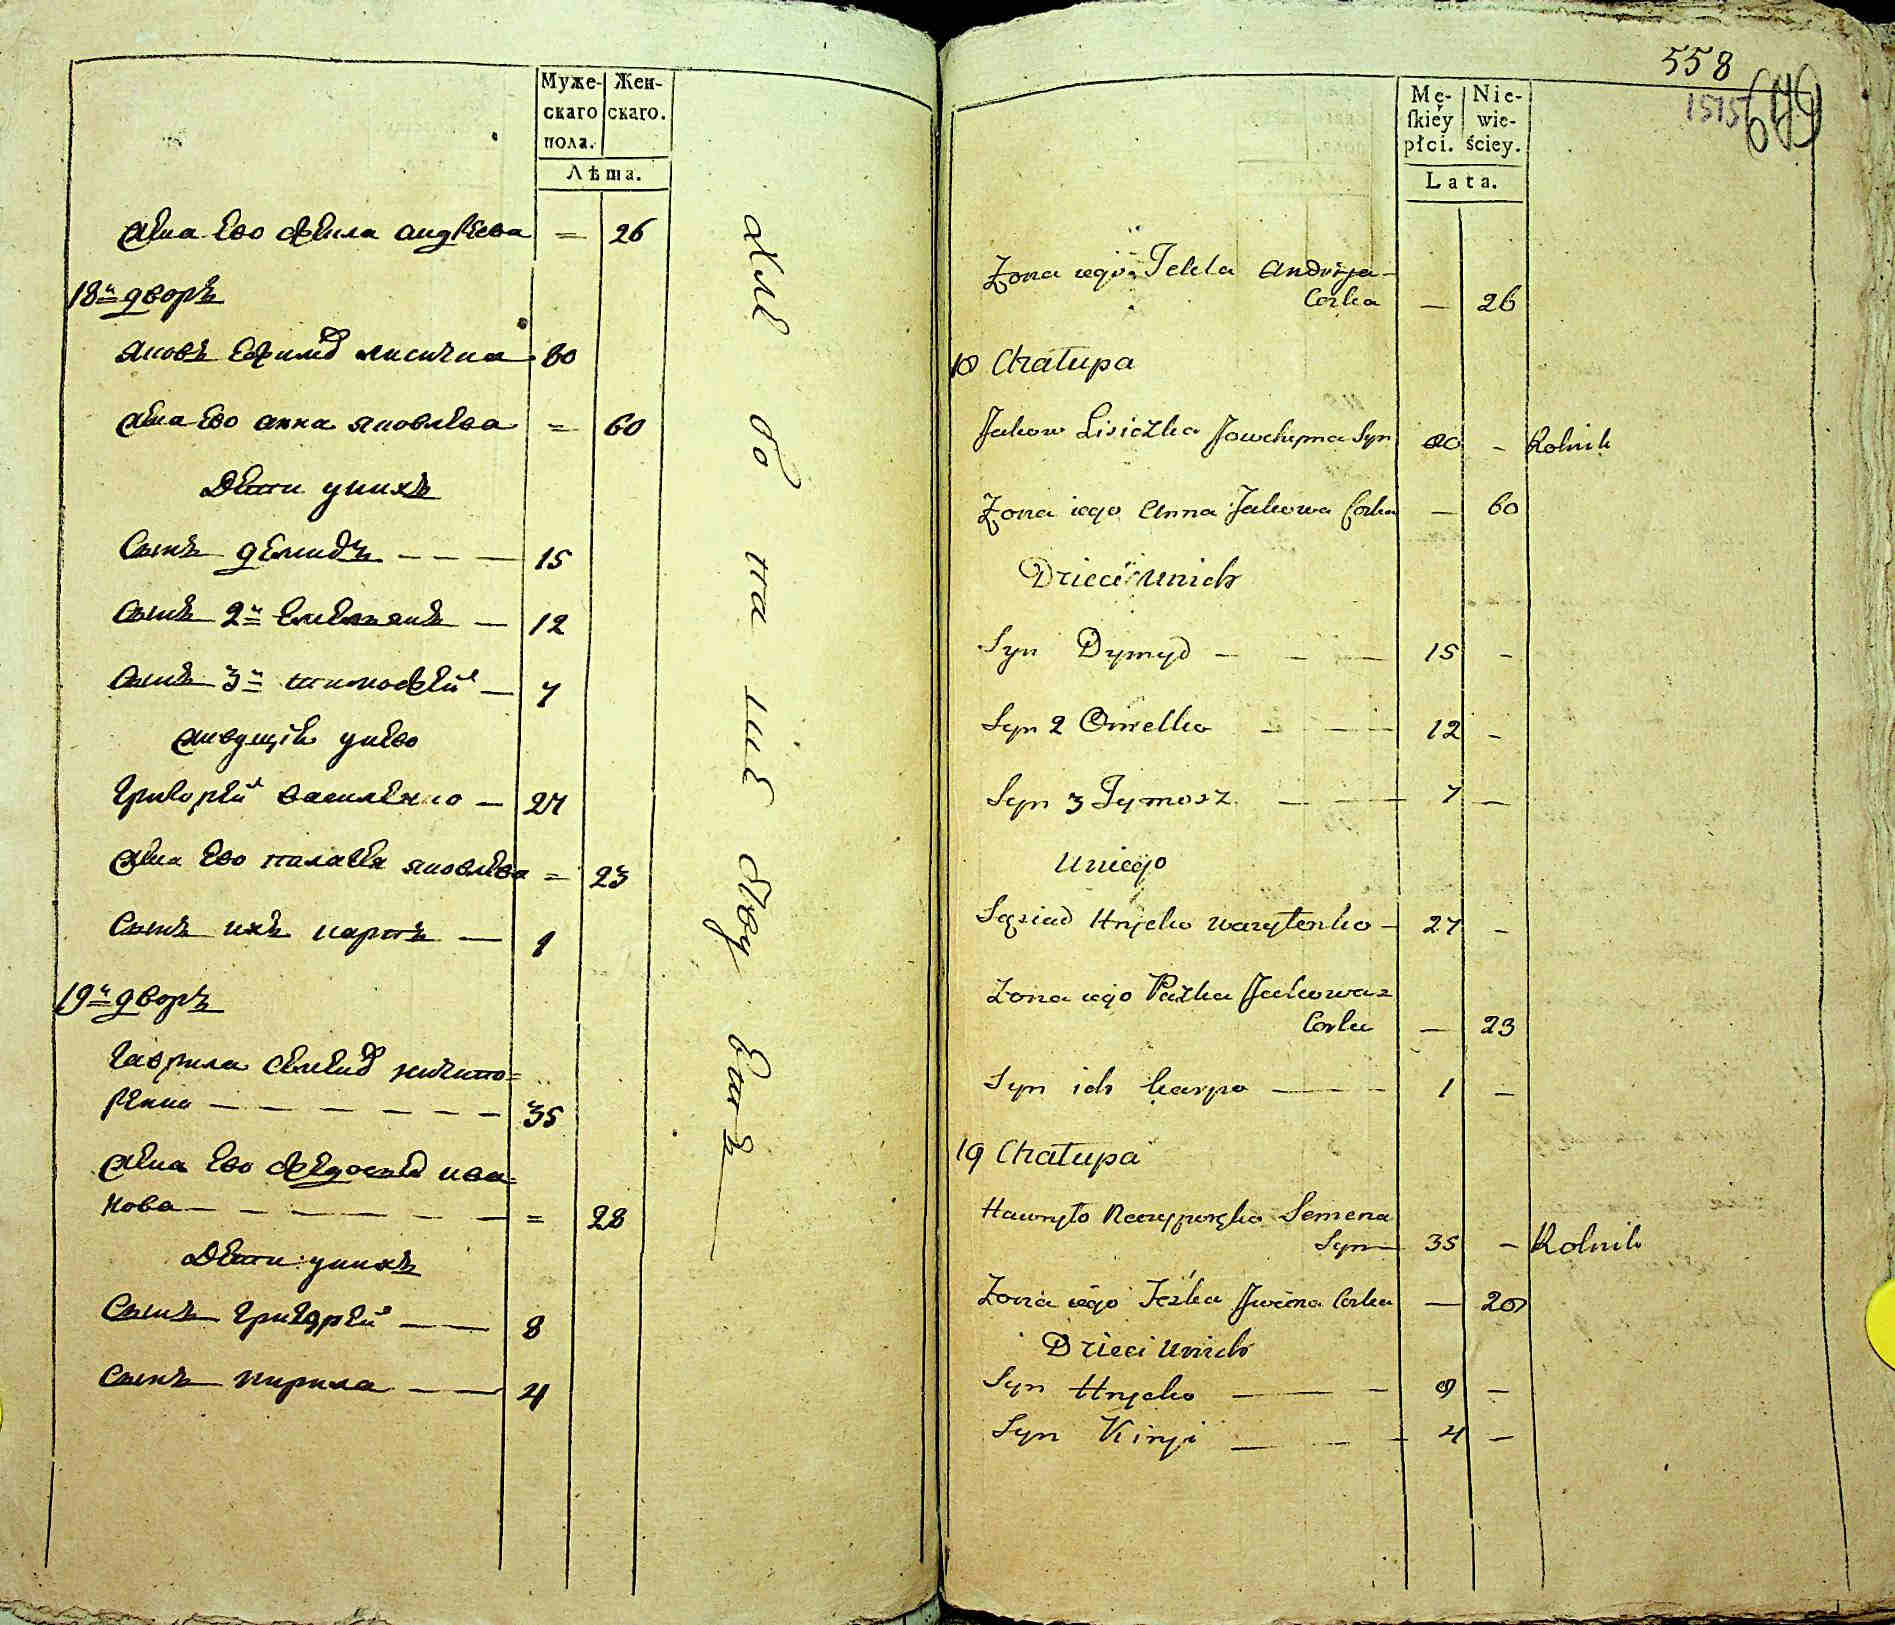 Муже-
скаго
пола.
Жен-
скаго.
Лѣта.
жена ево фекла андреева = 26
18й дворъ
яковъ Ефимов лисичка 60
жена ево анна яковлева = 60
Дети у нихъ
Сынъ демидъ 15
Сынъ 2й емельянъ 12
Сынъ 3й тимофей 7
живущие у нево
григорей василенко 27
жена ево палагея яковлева = 23
Сынъ ихъ карпъ 1
19й дворъ
гаврила семенов ничипо=
ренко 35
жена ево федосья ива=
нова = 28
Дети у нихъ
Сынъ григорей 8
Сынъ кирила 4
хле бо па ше ству етъ
558
1515
699
Mę-
ſkiéy
płci.
Nie-
wie-
ściey.
Lata.
Zona iego Tekla Andryja
Corka — 26
18 Chałupa
Jakow Lisiczka Jowchyma Syn 60 — Rolnik
Zona iego Anna Jakowa Corka — 60
Dzieci unich
Syn Dymyd 15 —
Syn 2 Omelko 12 —
Syn 3 Tymosz 7 —
Uniego
Sąsiad Hryćko Wasylenko 27 —
Zona iego Paźka Jakowa
Corka — 23
Syn ich karpo 1 —
19 Chałupa
Hawryło Semena
Syn 35 — Rolnik
Zona iego Jwana Corka — 28
Dzieci unich
Syn Hryćko 8 —
Syn Kiryi 4 —